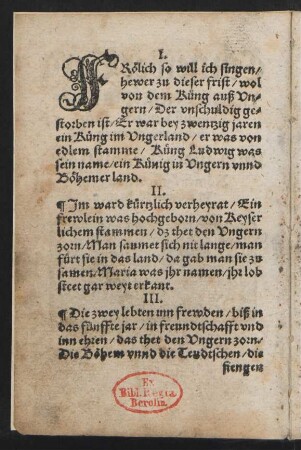 I.
FRölich so will ich singen/
hewer zu dieser frist/wol
von dem Küng auß Vn-
gern/Der vnschuldig ge-
storben ist/Er war bey zwentzig jaren
ein Küng im Vngerland/er was von
edlem stamme/Küng Ludwig was
sein name/ein Künig in Vngern vnnd
Böhemer land.
II.
¶ Jm ward kürtzlich verheyrat/Ein
frewlein was hochgeborn/von Keyser
lichem stammen/dz thet den Vngern
zorn/Man saumet sich nit lange/man
fürt sie in das land/da gab man sie zu
samen/Maria was jhr namen/jhr lob
steet gar weyt erkant.
III.
¶ Die zwey lebten inn frewden/biß in
das fünffte jar/in freundtschafft vnd
inn ehren/das thet den Vngern zorn/
Die Böhem vnnd die Teudtschen/die
fiengen
Ex
Bibl. Regia
Berolin.